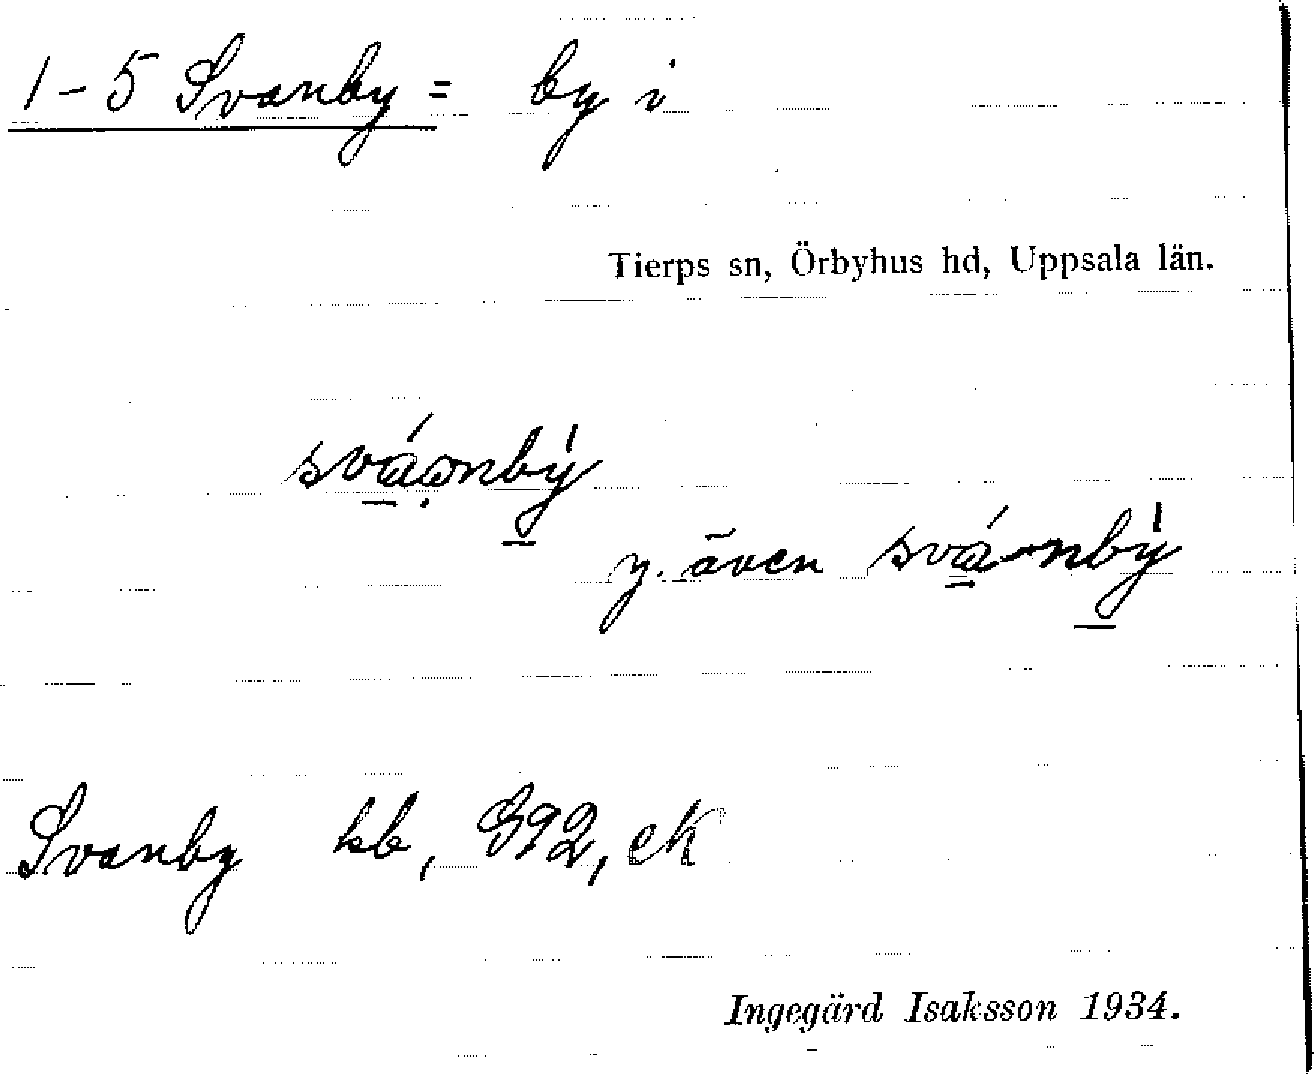 1-5 Svanby = by i
Tierps sn, Örbyhus hd, Uppsala län.
y. även
Svanby kb, G92, ek
Ingegärd Isaksson 1934.